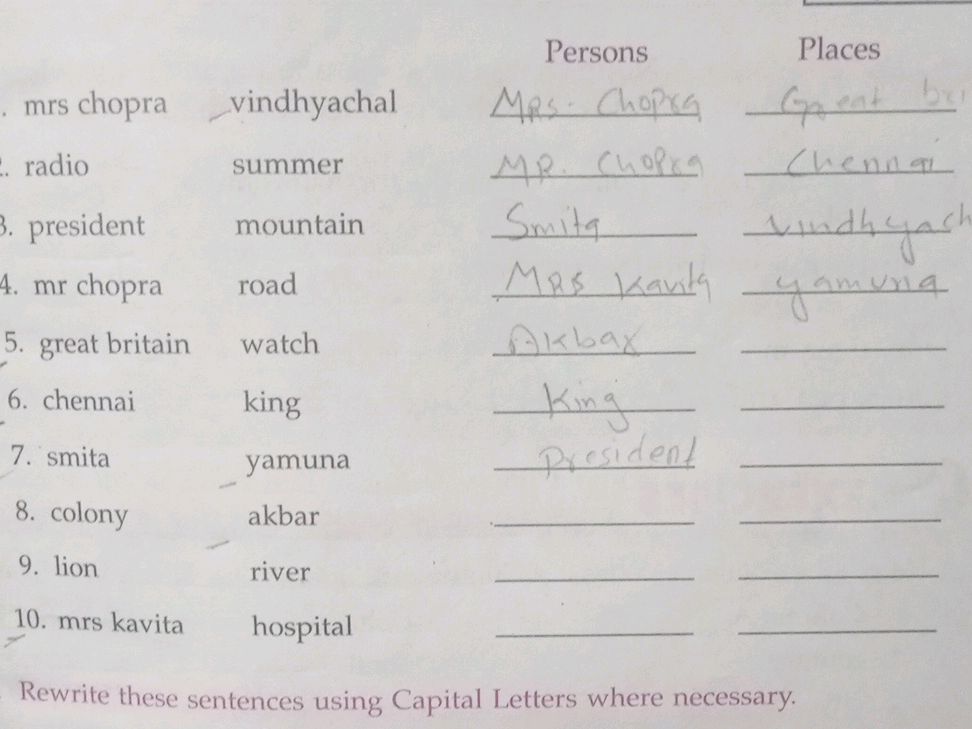 Persons Places
. mrs chopra vindhyachal MRS. Chopra Great bri
2. radio summer MR. Chopra Chennai
3. president mountain Smita vindhyach
4. mr chopra road MRS Kavita yamuna
5. great britain watch Akbar
6. chennai king King
7. smita yamuna president
8. colony akbar
9. lion river
10. mrs kavita hospital
Rewrite these sentences using Capital Letters where necessary.